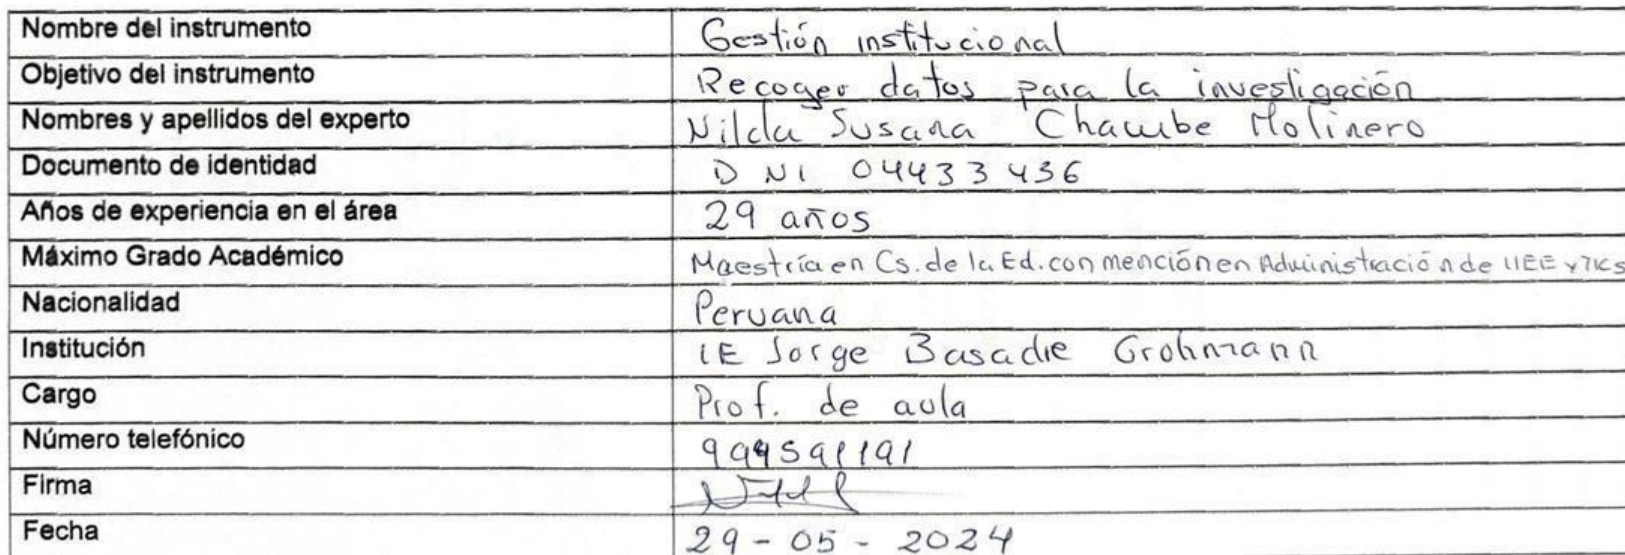 Nombre del instrumento Gestión institucional
Objetivo del instrumento Recoger datos para la investigación
Nombres y apellidos del experto Nilda Susana Chambe Molinero
Documento de identidad DNI 04433436
Años de experiencia en el área 29 años
Máximo Grado Académico Maestría en Cs. de la Ed. con mención en Administración de IIEE y TICs
Nacionalidad Peruana
Institución IE Jorge Basadre Grohmann
Cargo Prof. de aula
Número telefónico
Firma
Fecha 29-05-2024